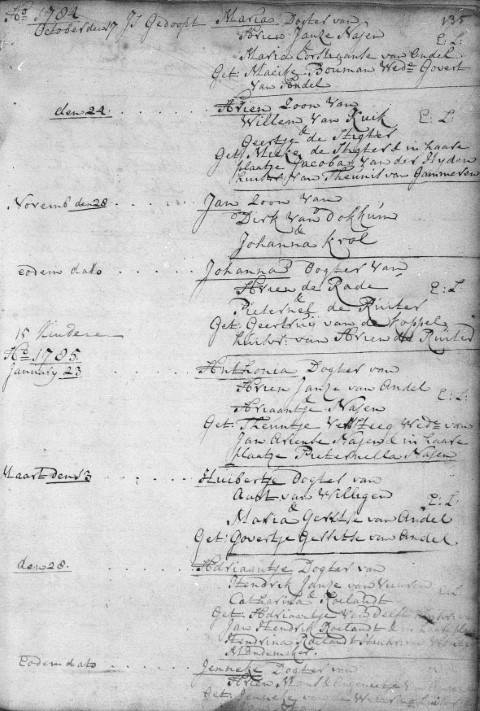 Ao. 1784 135
October den 17 Is Gedoopt Maria Dogter van
Arien Janze Nasen E: L:
Maria Corstiaanse van Andel
Get: Maeike Bouman Wede Govert
van Andel
den 24 Arien Zoon van
Willem van Kuik E: L:
&
Geertje de Stigter
Get: de Stigter & in haare
plaatje Jacoba van der Hyden
huisvr. van Theunis van Gammeren
Novemb den 28 Jan Zoon van
Dirk van Dokkum
&
Johanna Krol
eodem dato Johanna Dogter van
Arien de Rade E: L
&
Pieternel de Ruiter
Get: Geertruy van de Koppel
huisvr: van Arien de Ruiter
15 Kinderen
Ao. 1785
January 23 Anthonia Dogter van
Arien Janze van Andel E: L:
&
Adriaantje Nasen
Get: Theuntje Wede van
Jan Ariense Nasen & in haare
plaatje Pieternella Nasen
Maart den 13 Huibertje Dogter van
Aart van Willigen E: L:
&
Maria Gerritse van Andel
Get: Govertje Gerritse van Andel
den 28 Adriaantje Dogter van
Hendrik Janze van
Catharina Roelandt
Get: Adriaantje
Jan Hendrik Roelandt &
Hendrina Roelandt
eodem dato Jenneke Dogter van
Arien
Get: Jenneke van